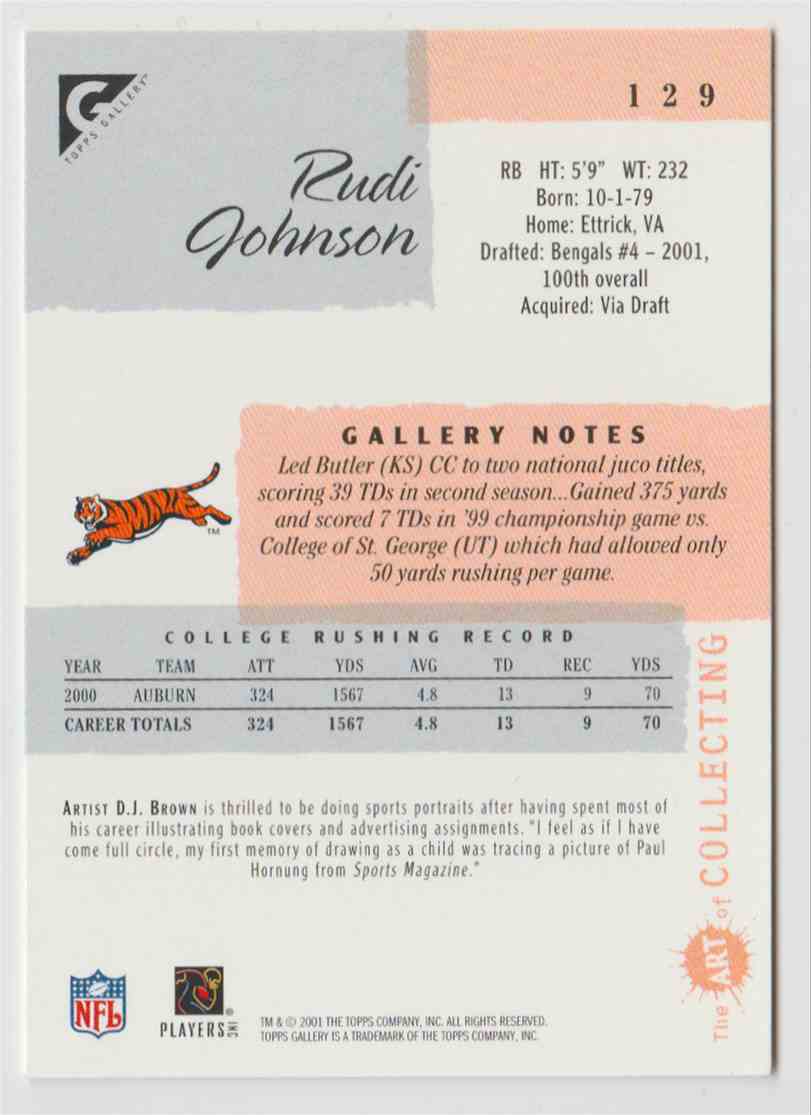 G
TOPPS GALLERY™
129
Rudi
Johnson
RB HT: 5'9" WT: 232
Born: 10-1-79
Home: Ettrick, VA
Drafted: Bengals #4 – 2001,
100th overall
Acquired: Via Draft
GALLERY NOTES
Led Butler (KS) CC to two national juco titles,
scoring 39 TDs in second season...Gained 375 yards
and scored 7 TDs in '99 championship game vs.
College of St. George (UT) which had allowed only
50 yards rushing per game.
TM
COLLEGE RUSHING RECORD
YEAR TEAM ATT YDS AVG TD REC YDS
2000 AUBURN 324 1567 4.8 13 9 70
CAREER TOTALS 324 1567 4.8 13 9 70
The ART of COLLECTING
ARTIST D.J. BROWN is thrilled to be doing sports portraits after having spent most of
his career illustrating book covers and advertising assignments. "I feel as if I have
come full circle, my first memory of drawing as a child was tracing a picture of Paul
Hornung from Sports Magazine."
NFL
PLAYERS INC ®
TM & © 2001 THE TOPPS COMPANY, INC. ALL RIGHTS RESERVED.
TOPPS GALLERY IS A TRADEMARK OF THE TOPPS COMPANY, INC.